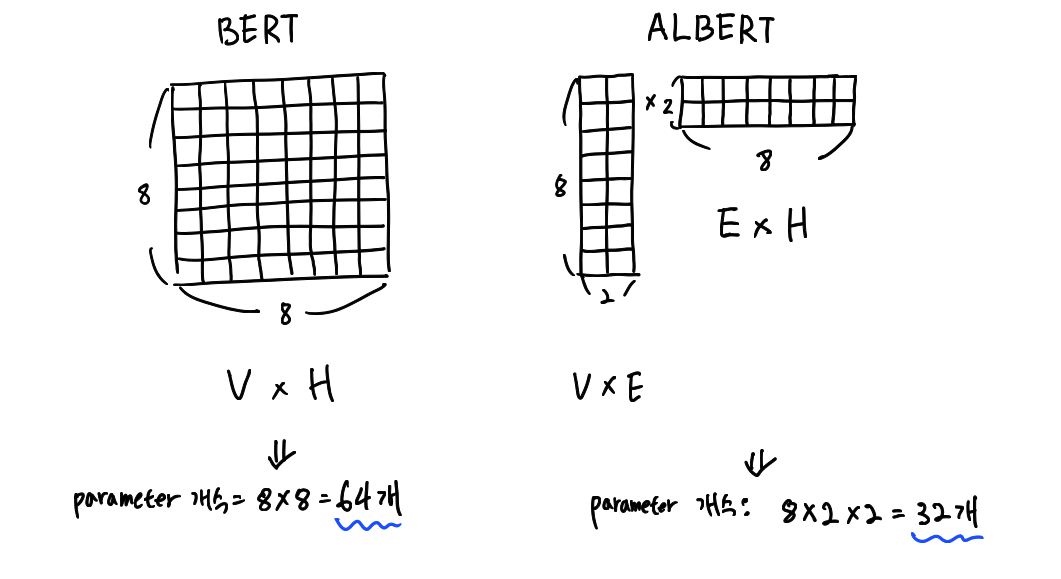 BERT
8
8
V x H
⇓
parameter 개수 = 8 x 8 = 64개
ALBERT
8
2
x 2
8
E x H
V x E
⇓
parameter 개수: 8 x 2 x 2 = 32개